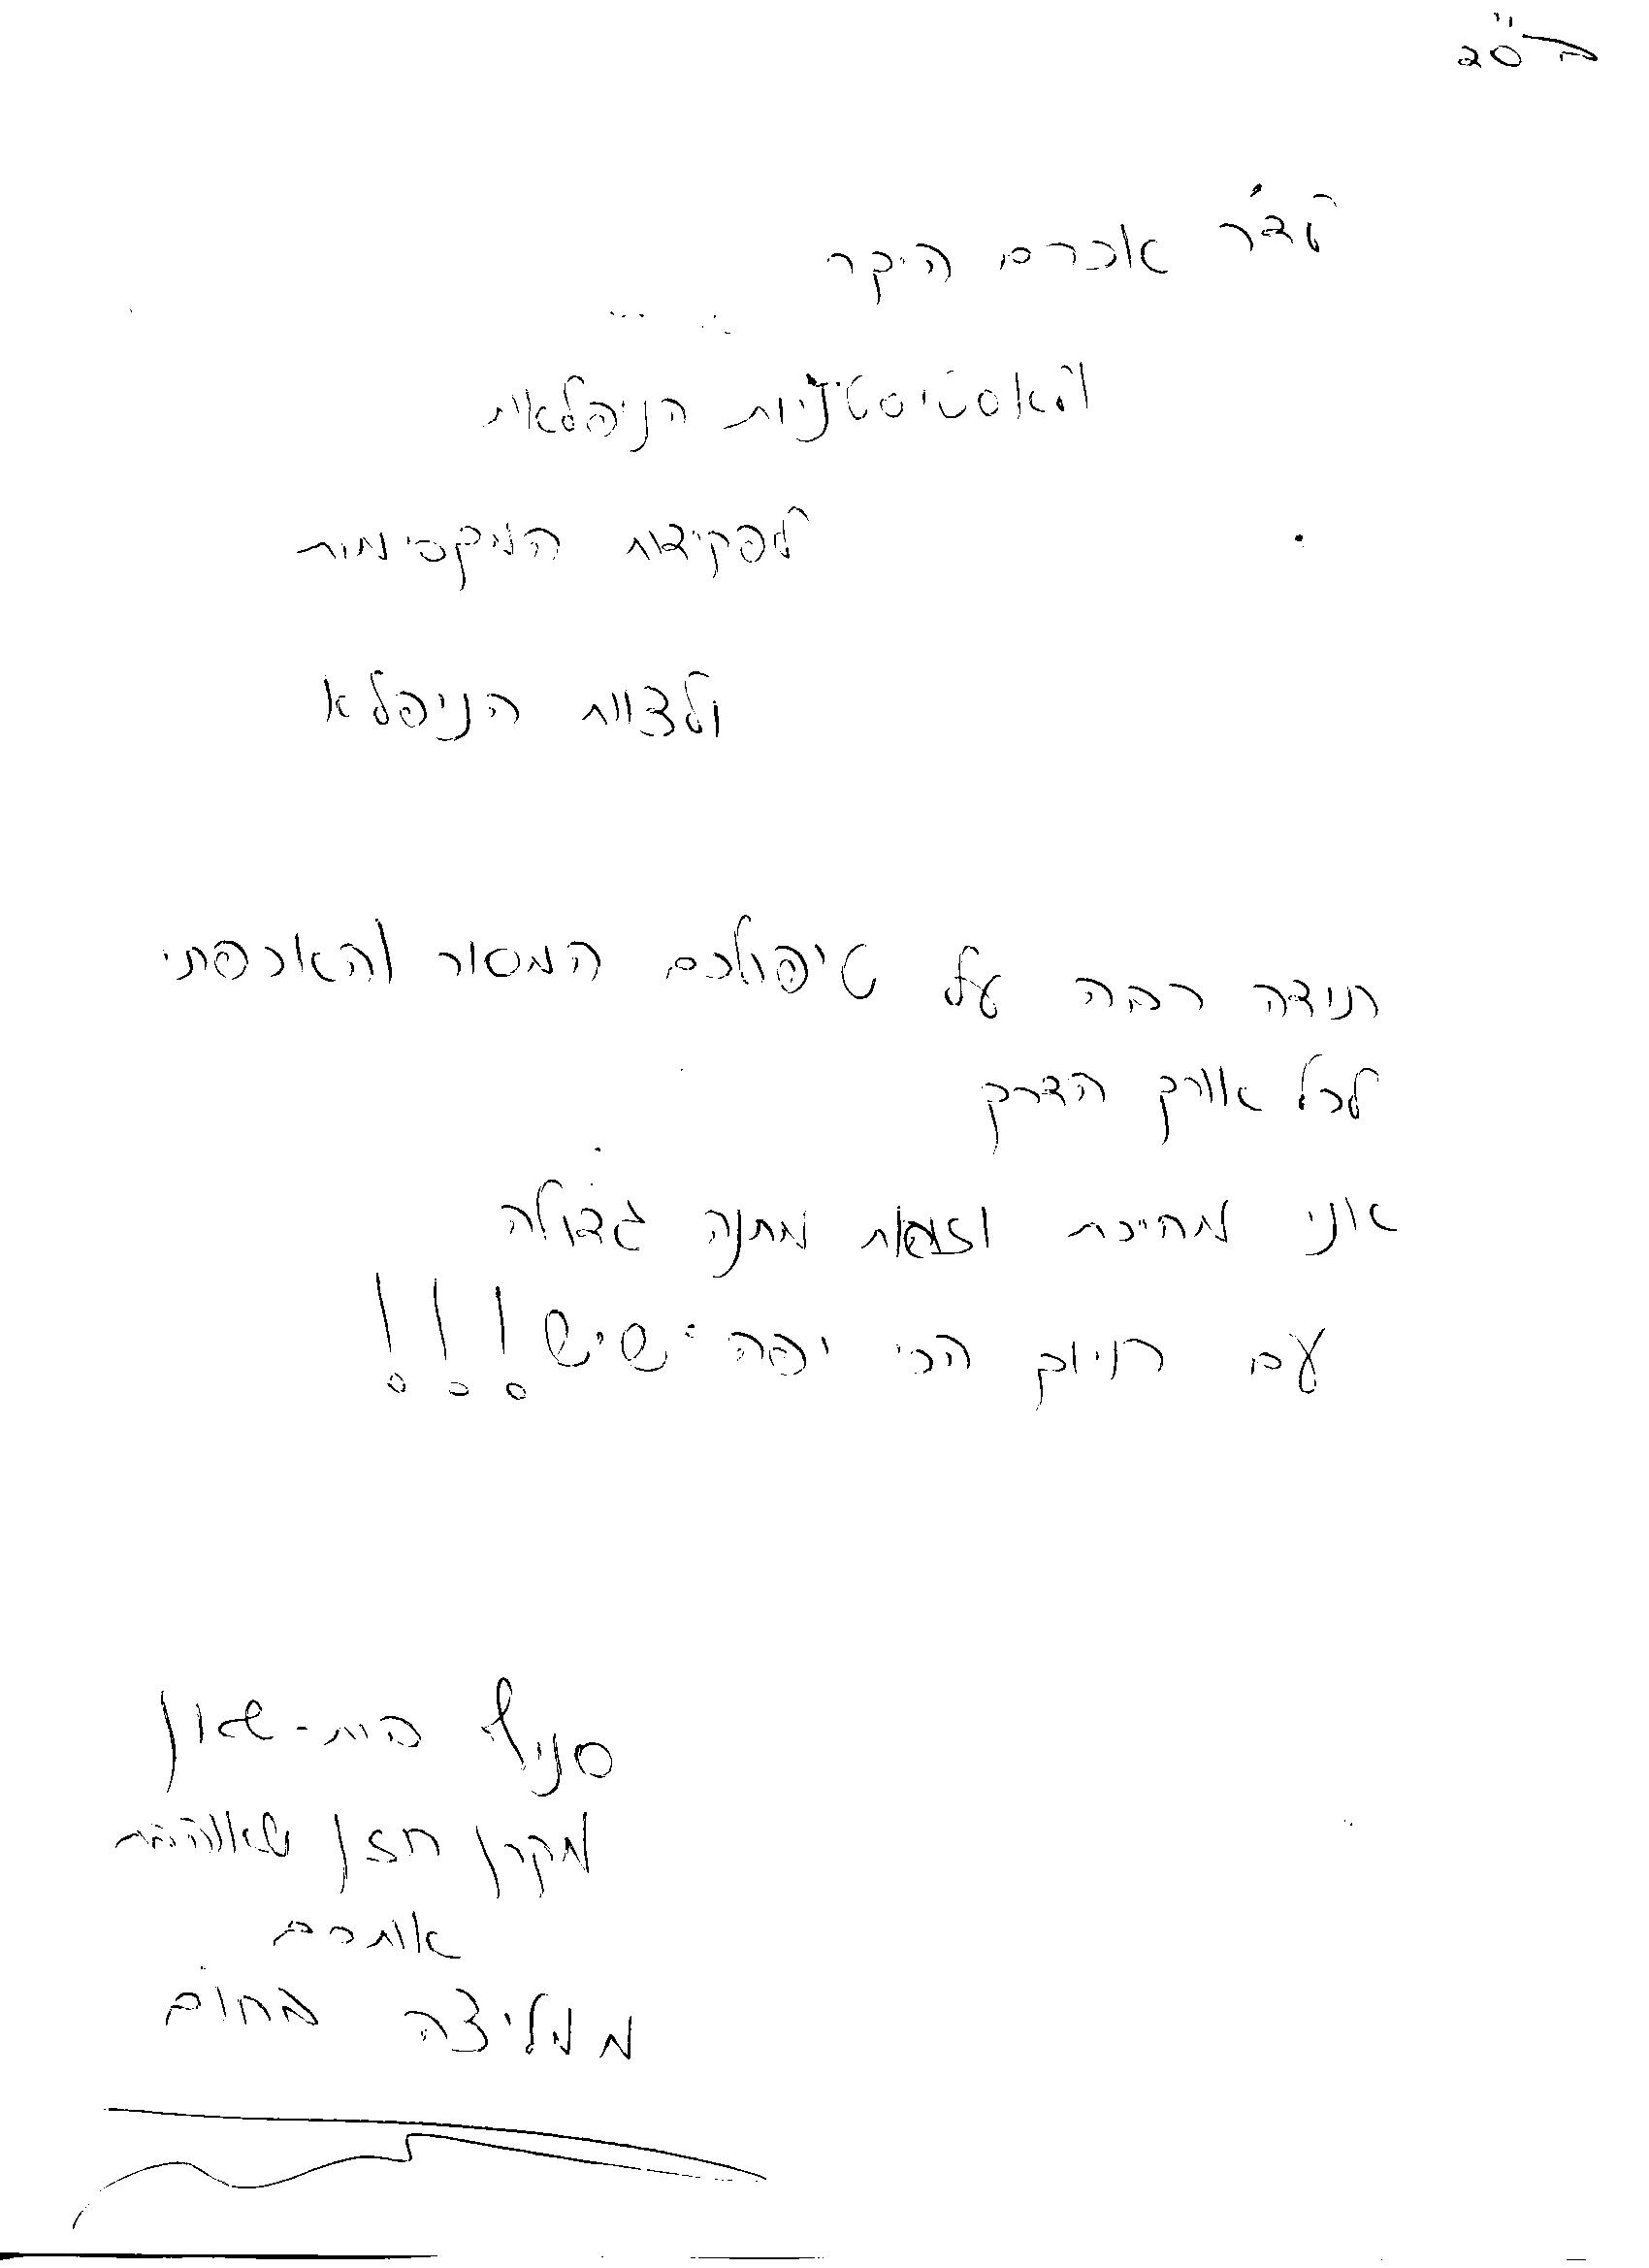 בס"ד
לד"ר אכרם היקר
לאסיסטיניות הניפלאות
לפקידות המקסימות
ולצוות הניפלא
תודה רבה על טיפולכם המסור והאכפתי
לכל אורך הדרך
אני מחייכת וזאת מתנה גדולה
עם חיוך הכי יפה שיש!!!
סניף בית-שאן
מקרן חזן שאוהבת
אותכם
ממליצה בחום